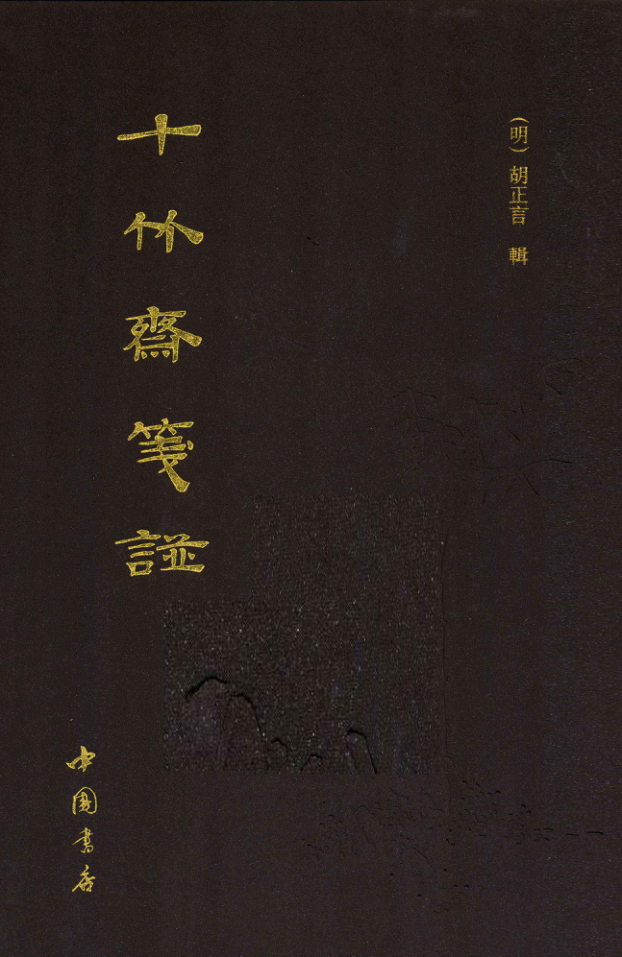 （明）胡正言　輯
十竹齋箋譜
中国書店